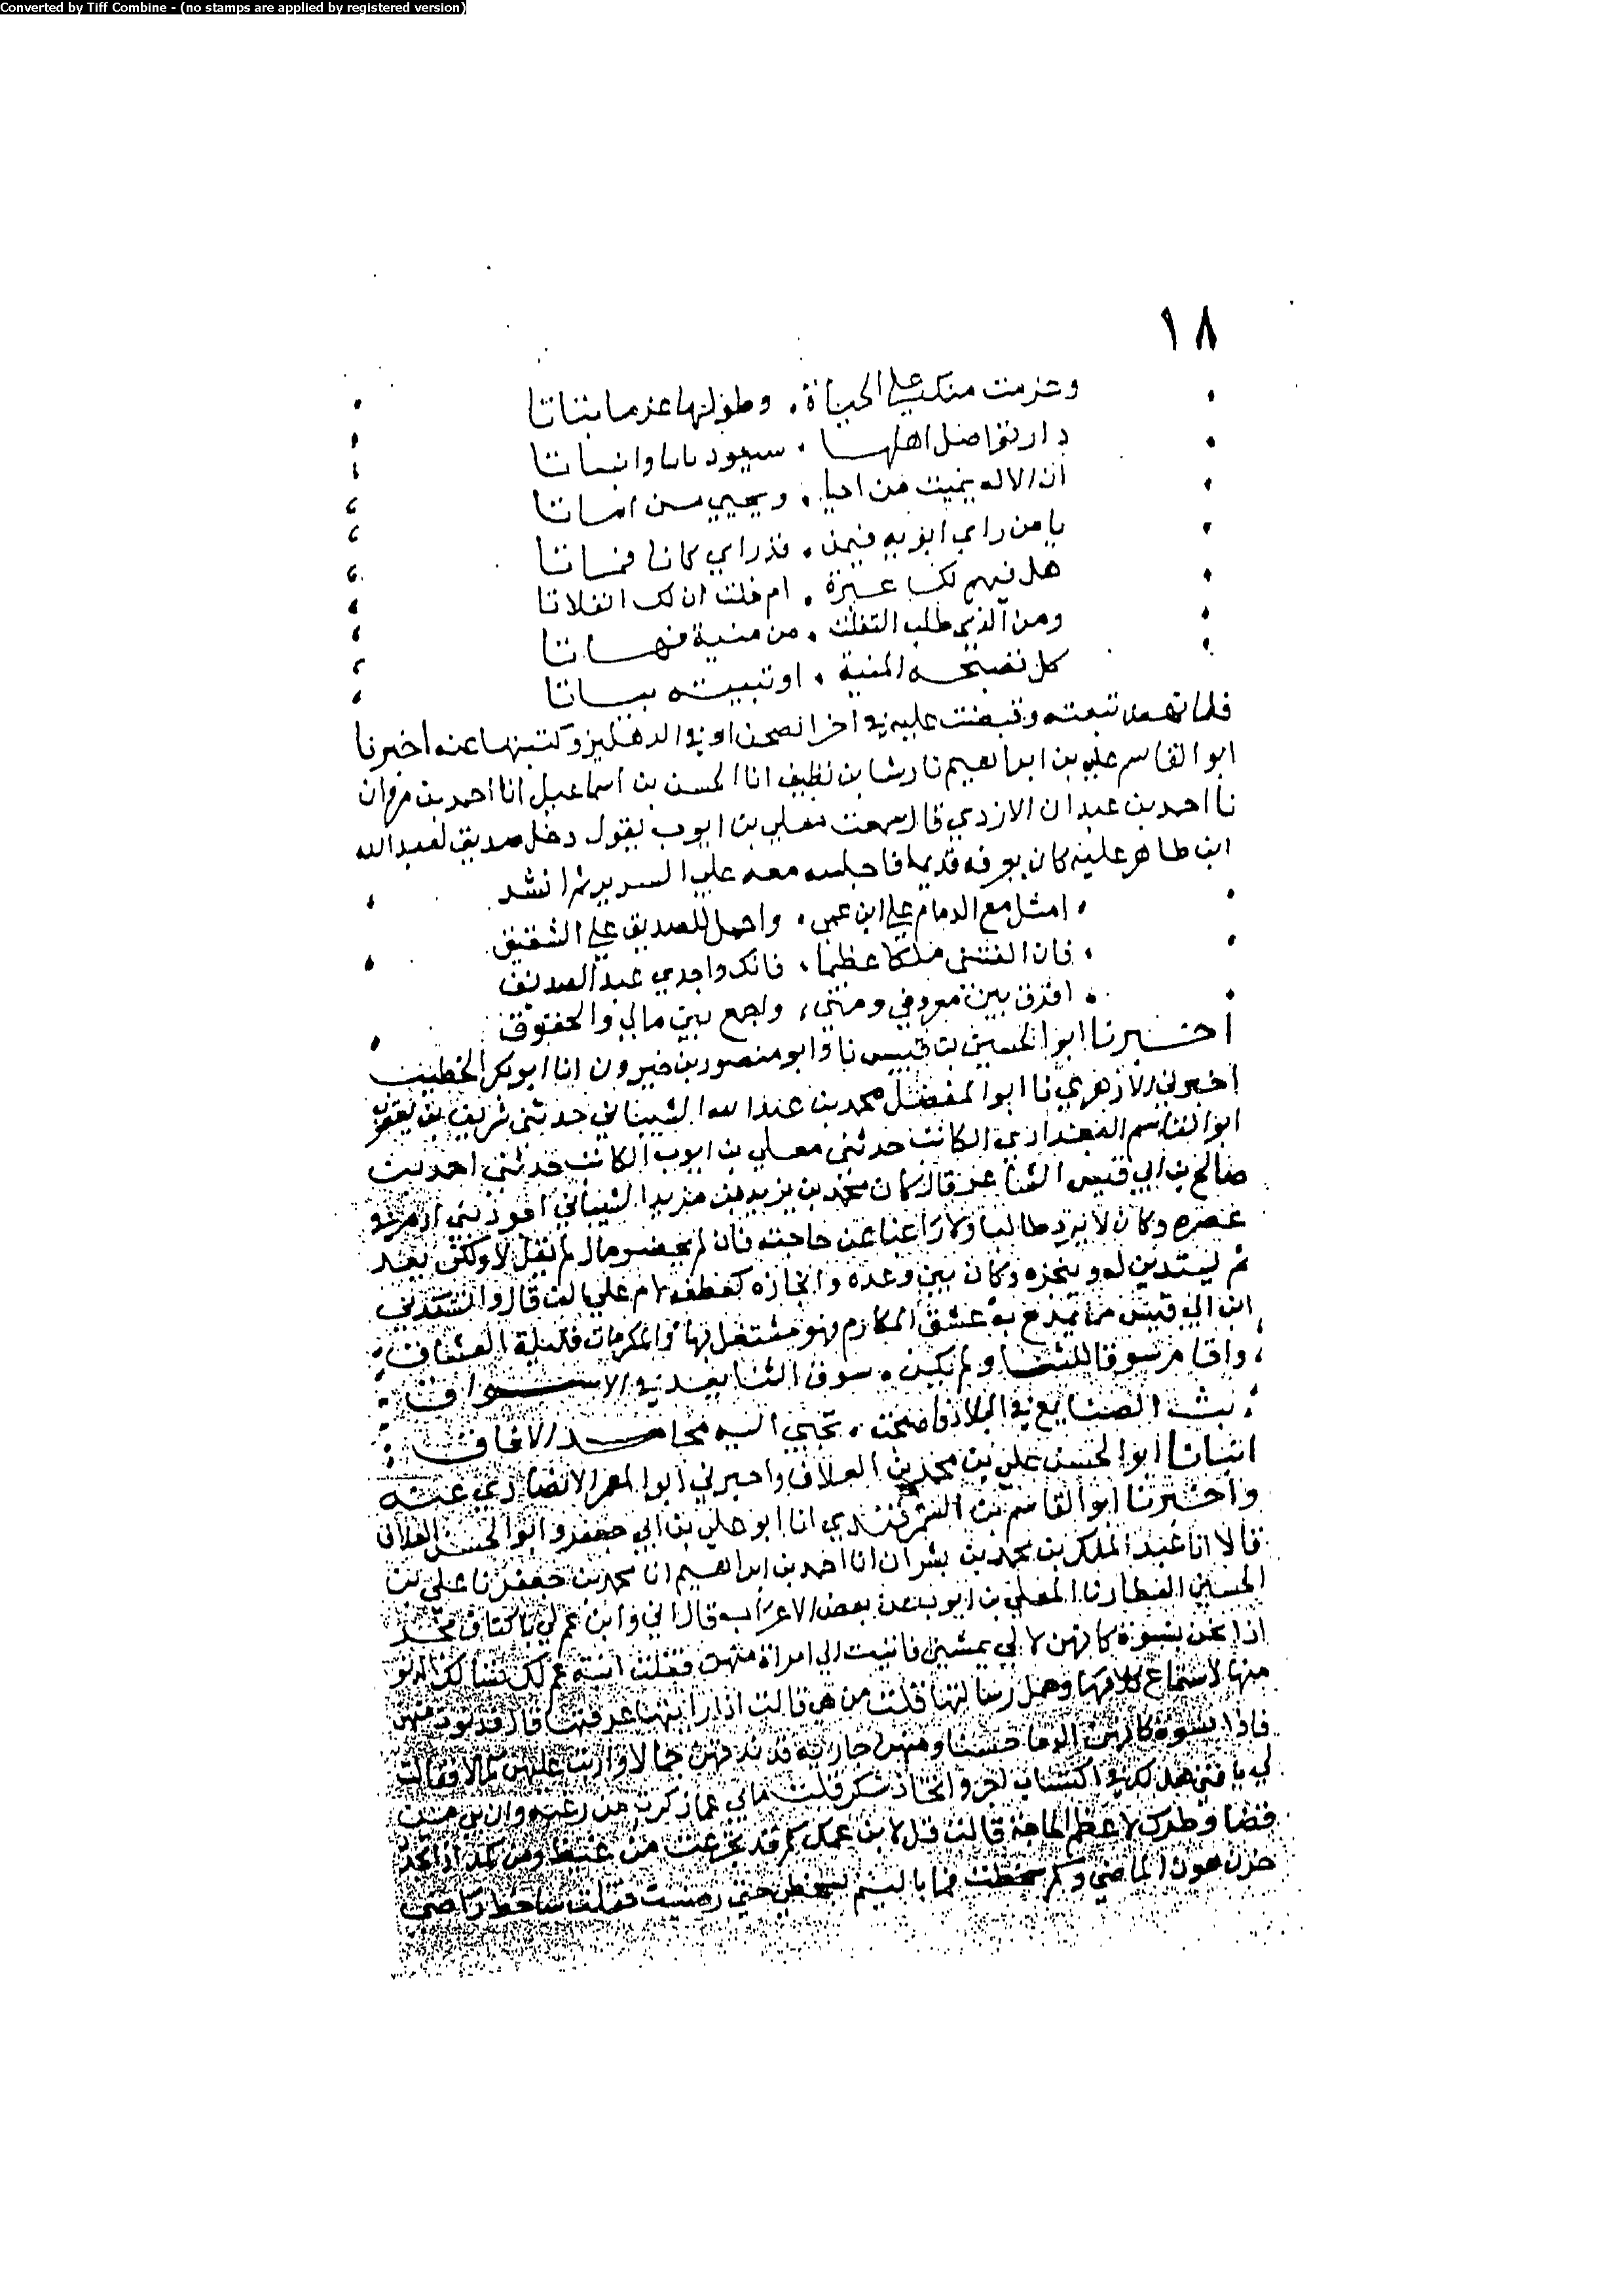 Converted by Tiff Combine - (no stamps are applied by registered version)
١٨
وعزمت منك على الحياة . وطولها عزما بتاتا
دار تواصل اهلها . سيعود نايا وانبتاتا
ان الاله يميت من احيا . ويحيي من اماتا
يا من راى ابويه فيمن . قد راى كانا فماتا
هل فيهم لك عبرة . ام خلت ان لك انفلاتا
ومن الذي طلب التفلت . من منية ففاتا
كل تصبحه المنية . او تبيته بياتا
فلما نهض تبعته وقبضت عليه في اخر الصحن او في الدهليز وكتبتها عنه اخبرنا
ابو القاسم علي بن ابراهيم نا رشا بن نظيف انا الحسن بن اسماعيل انا احمد بن مروان
نا احمد بن عبدان الازدي قال سمعت معلى بن ايوب يقول دخل صديق لعبد الله
ابن طاهر عليه كان يعرفه قديما فاجلسه معه على السرير ثم انشد
امثل مع الذمام على ابن عمي . واحمل للصديق على الشقيق
فان الفيتني ملكا عظيما . فانك واجدي عبد الصديق
افرق بين معروفي ومني . واجمع بين مالي والحقوق
اخبرنا ابو الحسين بن قبيس نا وابو منصور بن خيرون انا ابو بكر الخطيب
اخبرني الازهري نا ابو المفضل محمد بن عبد الله الشيباني حدثني
ابو القاسم البغدادي الكاتب حدثني معلى بن ايوب الكاتب حدثني احمد بن
صالح بن ابي قيس الشاعر قال كان محمد بن يزيد بن مزيد الشيباني
عصره وكان لا يرد طالبا ولا راغبا عن حاجته فان لم يحضره مال لم يقل لا ولكن يعد
ثم يستدين له وينجزه وكان بين وعده وانجازه كعطف لام على الف قال وانشدني
ابن ابي قيس من مديح به عشق المكارم فهو مشتغل بها والمكرمات قليلة العشاق
واقام سوقا للثنا ولم تكن . سوق الثنا تعد في الاسواق
بث الصنايع في البلاد فاصبحت . تجبى اليه محامد الافاق
انبانا ابو الحسن علي بن محمد بن العلاف واخبرني ابو المعمر الانصاري عنه
واخبرنا ابو القاسم بن السمرقندي انا ابو علي بن ابي جعفر وابو الحسن العلاف
قالا انا عبد الملك بن محمد بن بشران انا احمد بن ابراهيم انا محمد بن جعفر نا علي بن
الحسين العطار نا المعلى بن ايوب عن بعض الاعراب قال اني وابن عم لي باكناف نجد
اذا نحن بنسوة كانهن لالي يمشين فانتهيت الى امراة منهن فقلت ابنة عم لك تسالك الدنو
منها لاستماع كلامها وحمل رسالتها قلت من هي قالت اذا رايتها عرفتها قال فدنوت منهن
فاذا بنسوة كانهن الدمى حسنا ومنهن جارية قد بذتهن جمالا وارت عليهن كمالا فقالت
لي يا فتى هل لك في اكتساب اجر واتخاذ شكر قلت مابي عما ذكرت من رغبة وان بي
قضا وطرك لاعظم الحاجة قالت قل لابن عمك كم قد تجرعت من غيظ ومن كمد اذا تجدد
حزن هون الماضي وكم سخطت فما باليتم سخطي حتى رضيت فقلت ساخط راضي